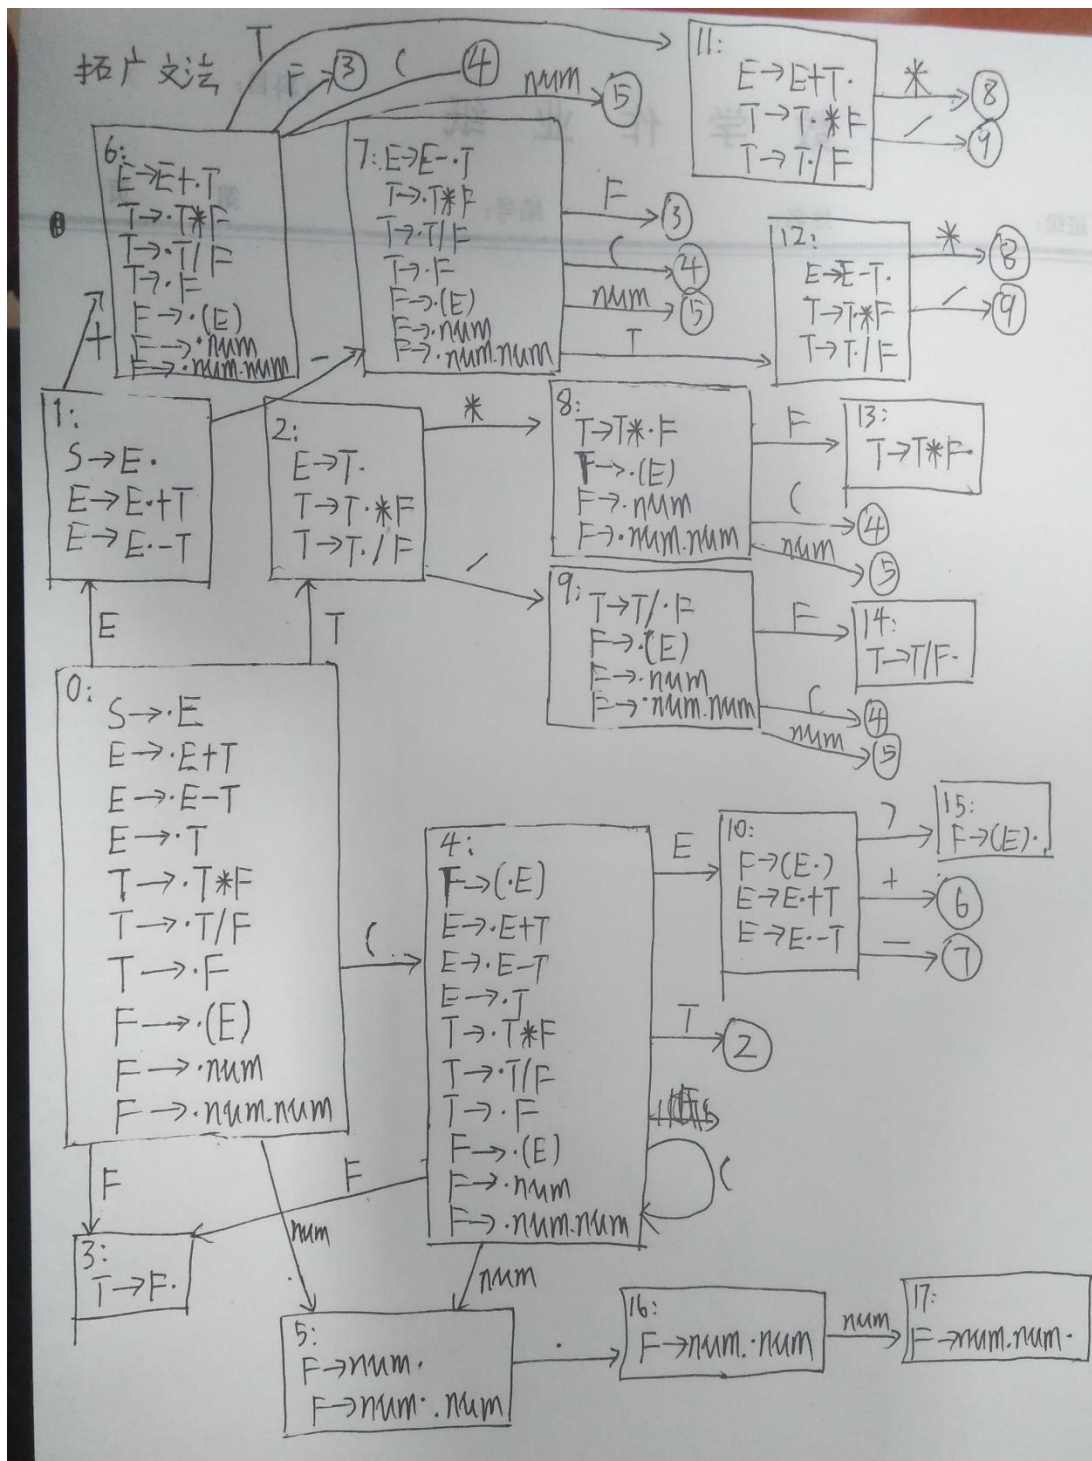 拓广文法
T
F
③
(
④
num
⑤
11:
E→E+T·
T→T·*F
T→T·/F
*
⑧
/
⑨
6:
E→E+·T
T→·T*F
T→·T/F
T→·F
F→·(E)
F→·num
F→·num.num
7:E→E-·T
T→·T*F
T→·T/F
T→·F
F→·(E)
F→·num
F→·num.num
F
③
(
④
num
⑤
T
12:
E→E-T·
T→T·*F
T→T·/F
*
⑧
/
⑨
+
-
1:
S→E·
E→E·+T
E→E·-T
2:
E→T·
T→T·*F
T→T·/F
*
/
8:
T→T*·F
F→·(E)
F→·num
F→·num.num
F
(
④
num
⑤
13:
T→T*F·
9:
T→T/·F
F→·(E)
F→·num
F→·num.num
F
(
④
num
⑤
14:
T→T/F·
E
T
0:
S→·E
E→·E+T
E→·E-T
E→·T
T→·T*F
T→·T/F
T→·F
F→·(E)
F→·num
F→·num.num
(
4:
F→(·E)
E→·E+T
E→·E-T
E→·T
T→·T*F
T→·T/F
T→·F
F→·(E)
F→·num
F→·num.num
E
10:
F→(E·)
E→E·+T
E→E·-T
)
15:
F→(E)·
+
⑥
-
⑦
T
②
(
F
F
num
num
3:
T→F·
5:
F→num·
F→num·.num
·
16:
F→num.·num
num
17:
F→num.num·